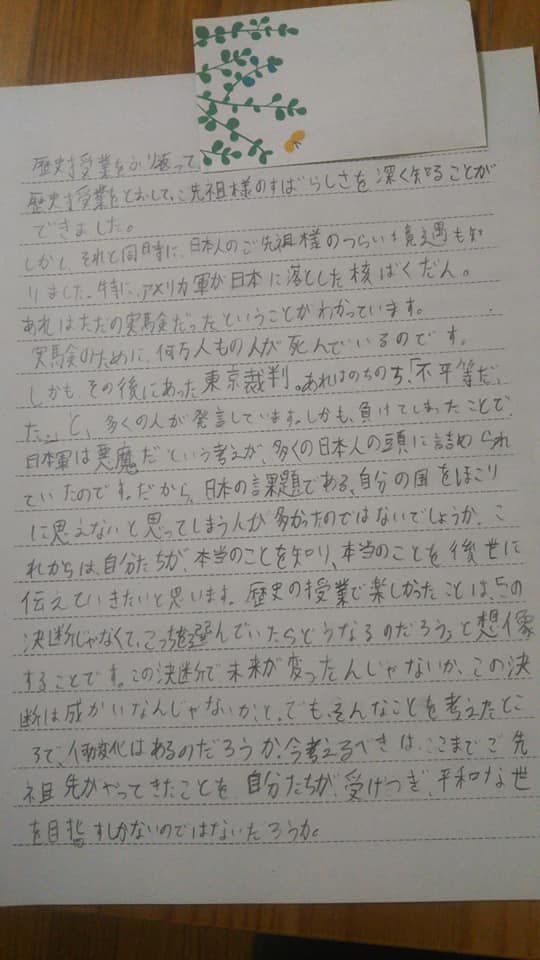 歴史授業をふり返って、
歴史授業をとおして、ご先祖様のすばらしさを深く知ることが
できました。
しかし、それと同時に、日本人のご先祖様のつらい境遇も知
りました。特に、アメリカ軍が日本に落とした核ばくだん。
あれはただの実験だったということがわかっています。
実験のために、何万人もの人が死んでいるのです。
しかも、その後にあった東京裁判。あれはのちのち、「不平等だっ
た。」と、多くの人が発言しています。しかも、負けてしまったことで、
日本軍は悪魔だという考えが、多くの日本人の頭に詰められ
ていたのです。だから、日本の課題である、自分の国をほこり
に思えないと思ってしまう人が多かったのではないでしょうか。こ
れからは、自分たちが、本当のことを知り、本当のことを後世に
伝えていきたいと思います。歴史の授業で楽しかったことは、「この
決断じゃなくて、こっちを選んでいたらどうなるのだろう」と想像
することです。この決断で未来が変ったんじゃないか、この決
断は成かいなんじゃないか、と。でも、そんなことを考えたとこ
ろで、変化はあるのだろうか。今考えるべきは、ここまでご先
祖先がやってきたことを、自分たちが、受けつぎ、平和な世
を目指すしかないのではないだろうか。